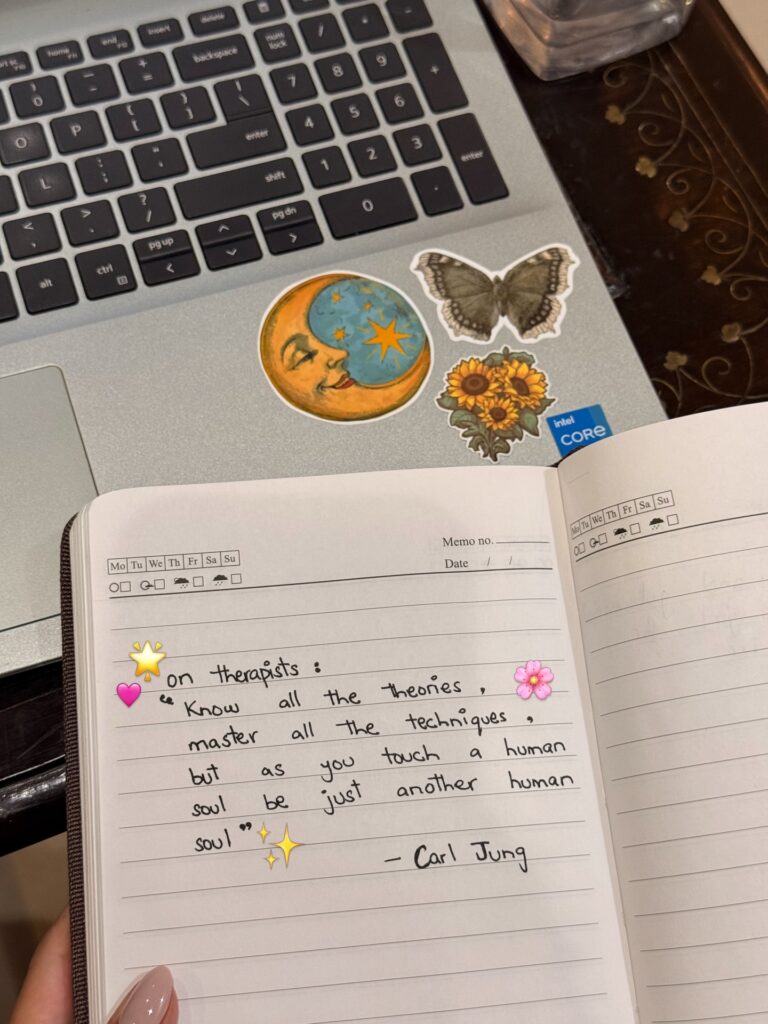 home
end
insert
delete
backspace
num
lock
enter
shift
alt
ctrl
pg up
pg dn
enter
O P
L
7 8 9
4 5 6
1 2 3
0
intel
CORE
Mo Tu We Th Fr Sa Su
Memo no.
Date / /
on therapists :
"Know all the theories,
master all the techniques,
but as you touch a human
soul be just another human
soul"
- Carl Jung
Mo Tu We Th Fr Sa Su